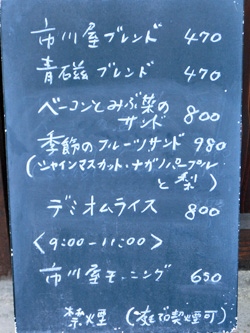 市川屋ブレンド 470
青磁ブレンド 470
ベーコンとみぶ菜の
サンド 800
季節のフルーツサンド 980
(シャインマスカット・ナガノパープル
と梨)
デミオムライス 800
<9:00-11:00>
市川屋モーニング 650
禁煙 (庭で喫煙可)